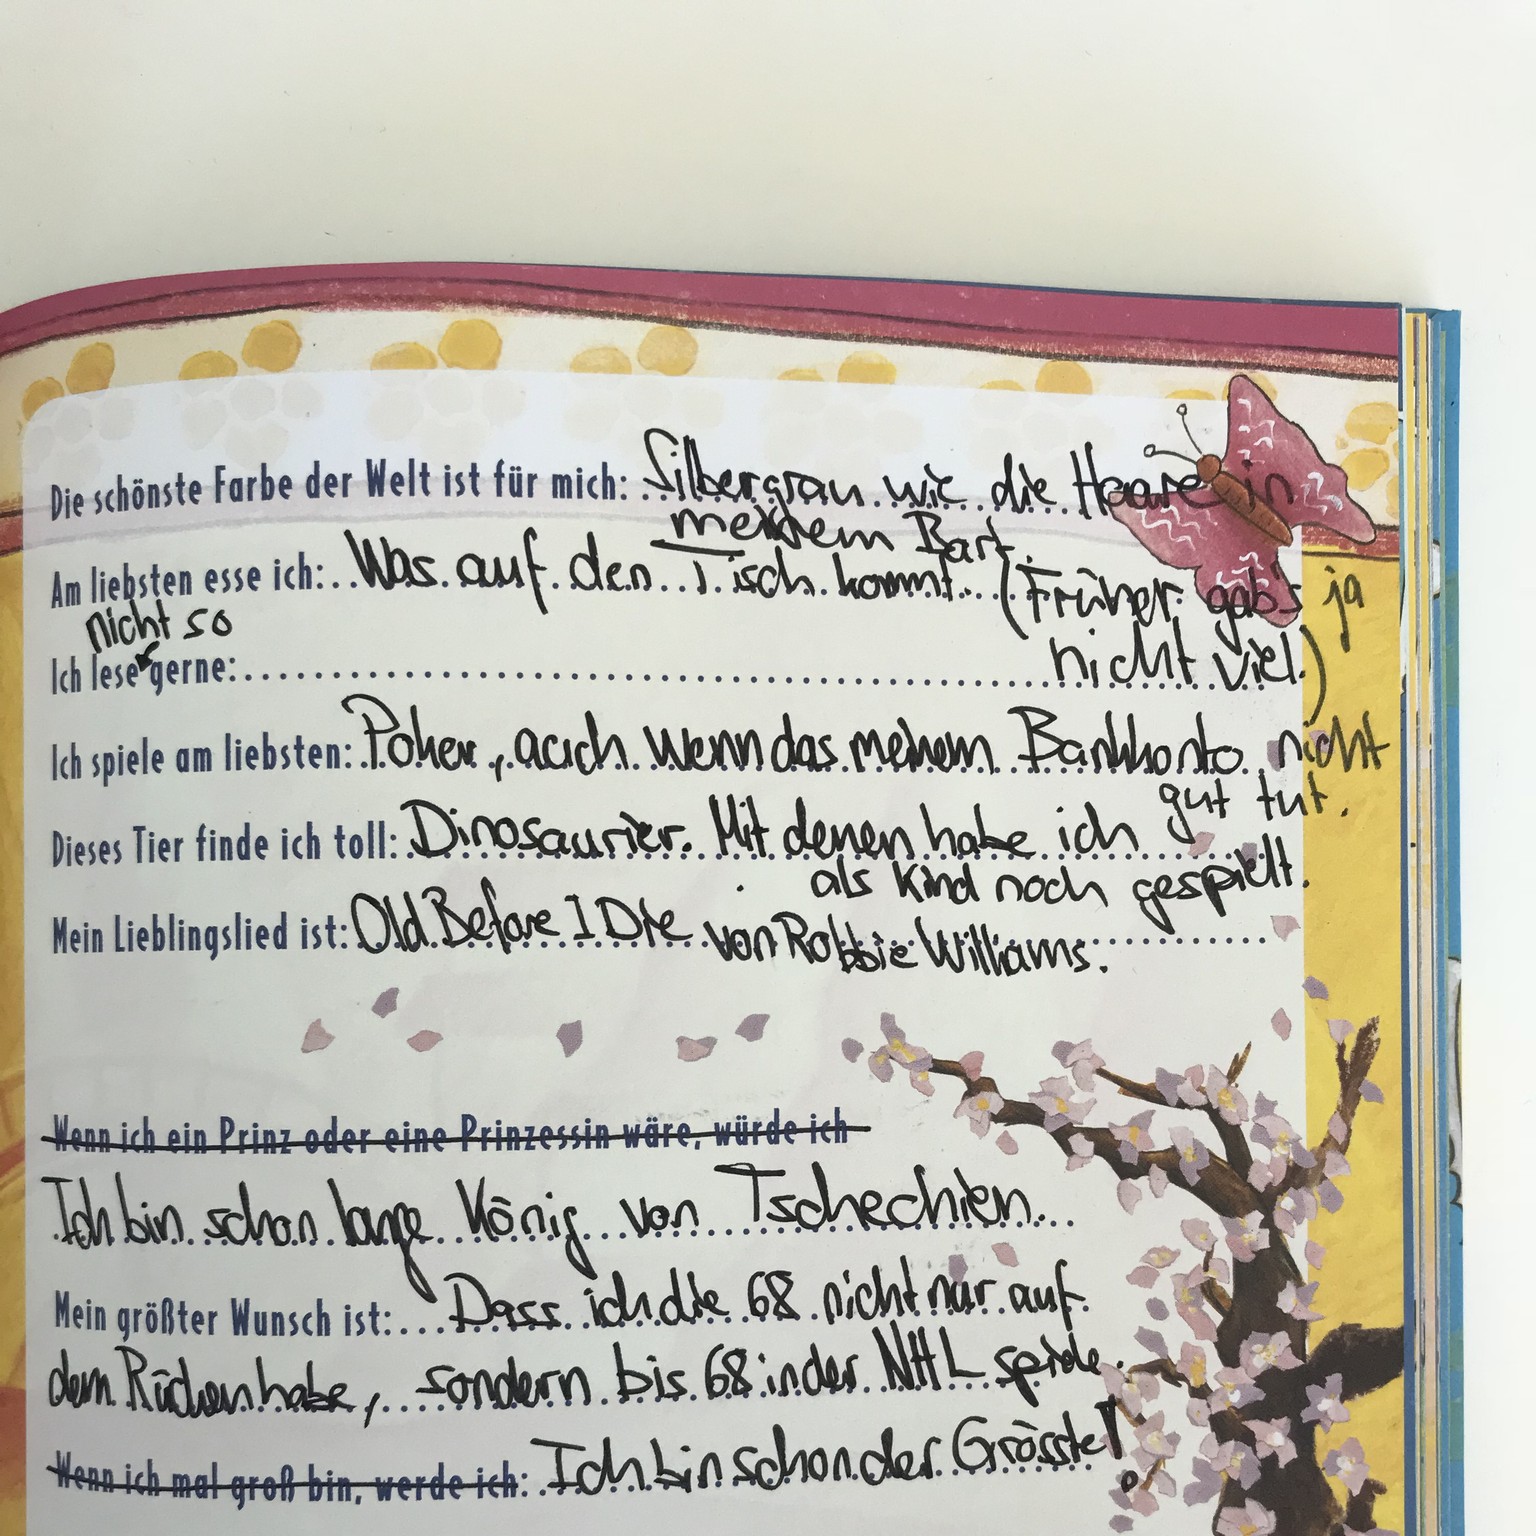 Die schönste Farbe der Welt ist für mich: Silbergrau wie die Haare in
meinem Bart.
Am liebsten esse ich: Was auf den Tisch kommt. (Früher gab's ja
nicht viel.)
nicht so
Ich lese gerne:
Ich spiele am liebsten: Poker, auch wenn das meinem Bankkonto nicht
gut tut.
Dieses Tier finde ich toll: Dinosaurier. Mit denen habe ich
als Kind noch gespielt.
Mein Lieblingslied ist: Old Before I Die von Robbie Williams.
Wenn ich ein Prinz oder eine Prinzessin wäre, würde ich
Ich bin schon lange König von Tschechien.
Mein größter Wunsch ist: Dass ich die 68 nicht nur auf
dem Rücken habe, sondern bis 68 in der NHL spiele.
Wenn ich mal groß bin, werde ich: Ich bin schon der Grösste!